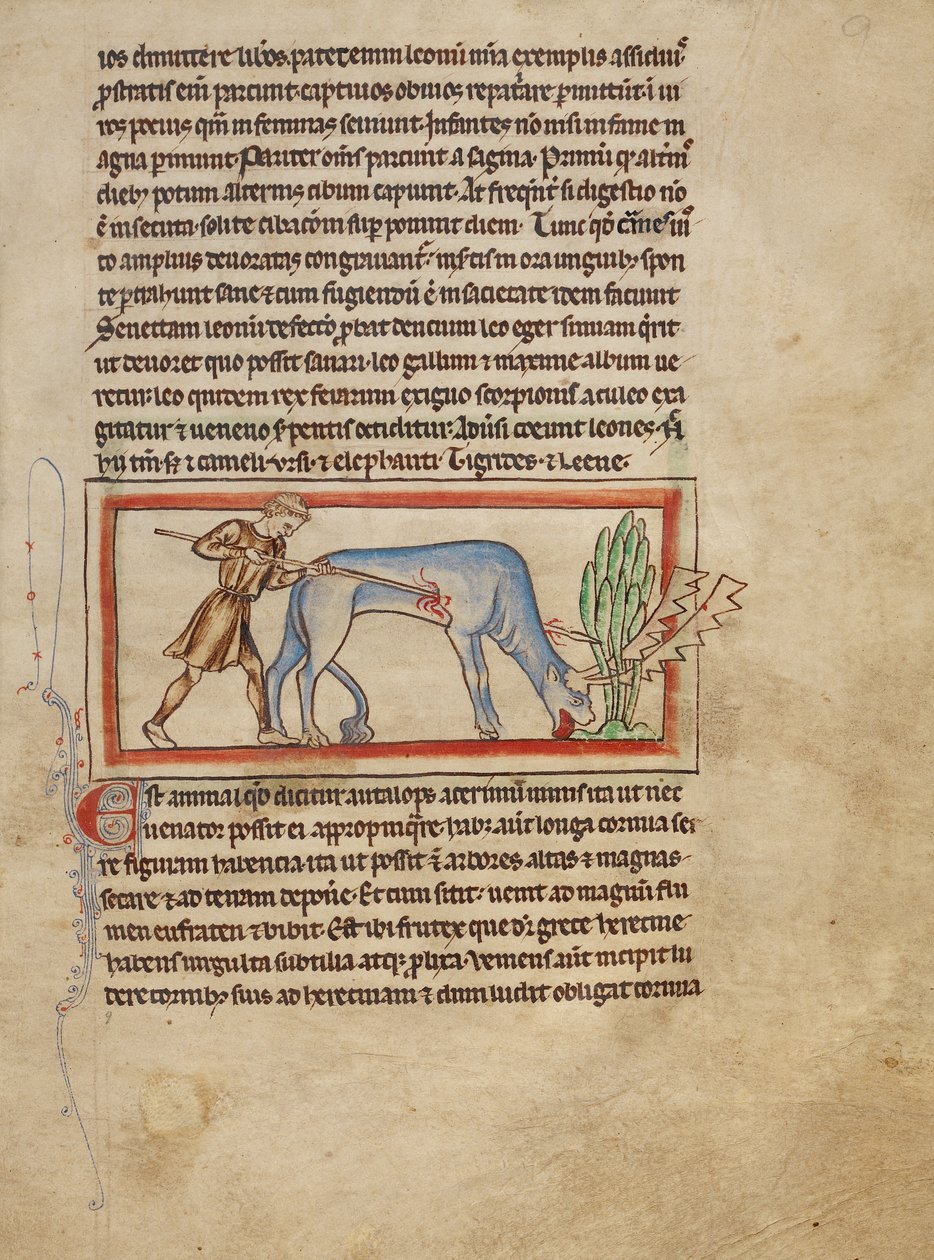 ios dimittere libros. patet enim leonū mīa exemplis assiduis
ꝓstratis eni᷑ parcunt. captiuos obuios repat͛are ꝑmittūt. ī ui
ros pocius qm̄ in feminas seuiunt. Infantes nō nisi in fame m
agna ꝑimunt. Pariter om̄s parcunt a sagina. Primū qꝫ alt͛nis
diebꝫ potum alternis cibum capiunt. At freqn̄t͛ si digestio nō
ē insecuta. solite cibacōni suꝑ ponunt diem. Tunc qd̕ carnes
to amplius deuoratas congrauant͛. insertis in ora unguibꝫ spon
te ꝓtrahunt sane ⁊ cum fugiendū ē in sacietate idem faciunt
Senectam leonū defectꝰ ꝓbat dencium leo eger simiam q̇rit
ut deuoret quo possit sanari. leo gallum ⁊ maxime album ue
retur. leo quidem rex ferarum exiguo scorpionis aculeo exa
gitatur ⁊ ueneno serpentis occiditur. Aduersi coeunt leones.
hij tm̄. sꝫ ⁊ cameli. ursi. ⁊ elephanti. Tigrides. ⁊ leene.
Est animal qd̕ dicitur antalops acerimū nimis ita ut nec
uenator possit ei appropinq̇re. habꝫ aūt longa cornua ser
re figuram habencia. ita ut possit ⁊ arbores altas ⁊ magnas
secare ⁊ ad terram deponere. Et cum sitit. uenit ad magnū flu
men eufraten ⁊ bibit. Est ibi frutex que dr̄ grece herecine
habens uirgulta subtilia atqꝫ ꝓlixa. Veniens aūt incipit lu
dere cornibꝫ suis ad herecinam ⁊ dum ludit obligat cornua
9
9